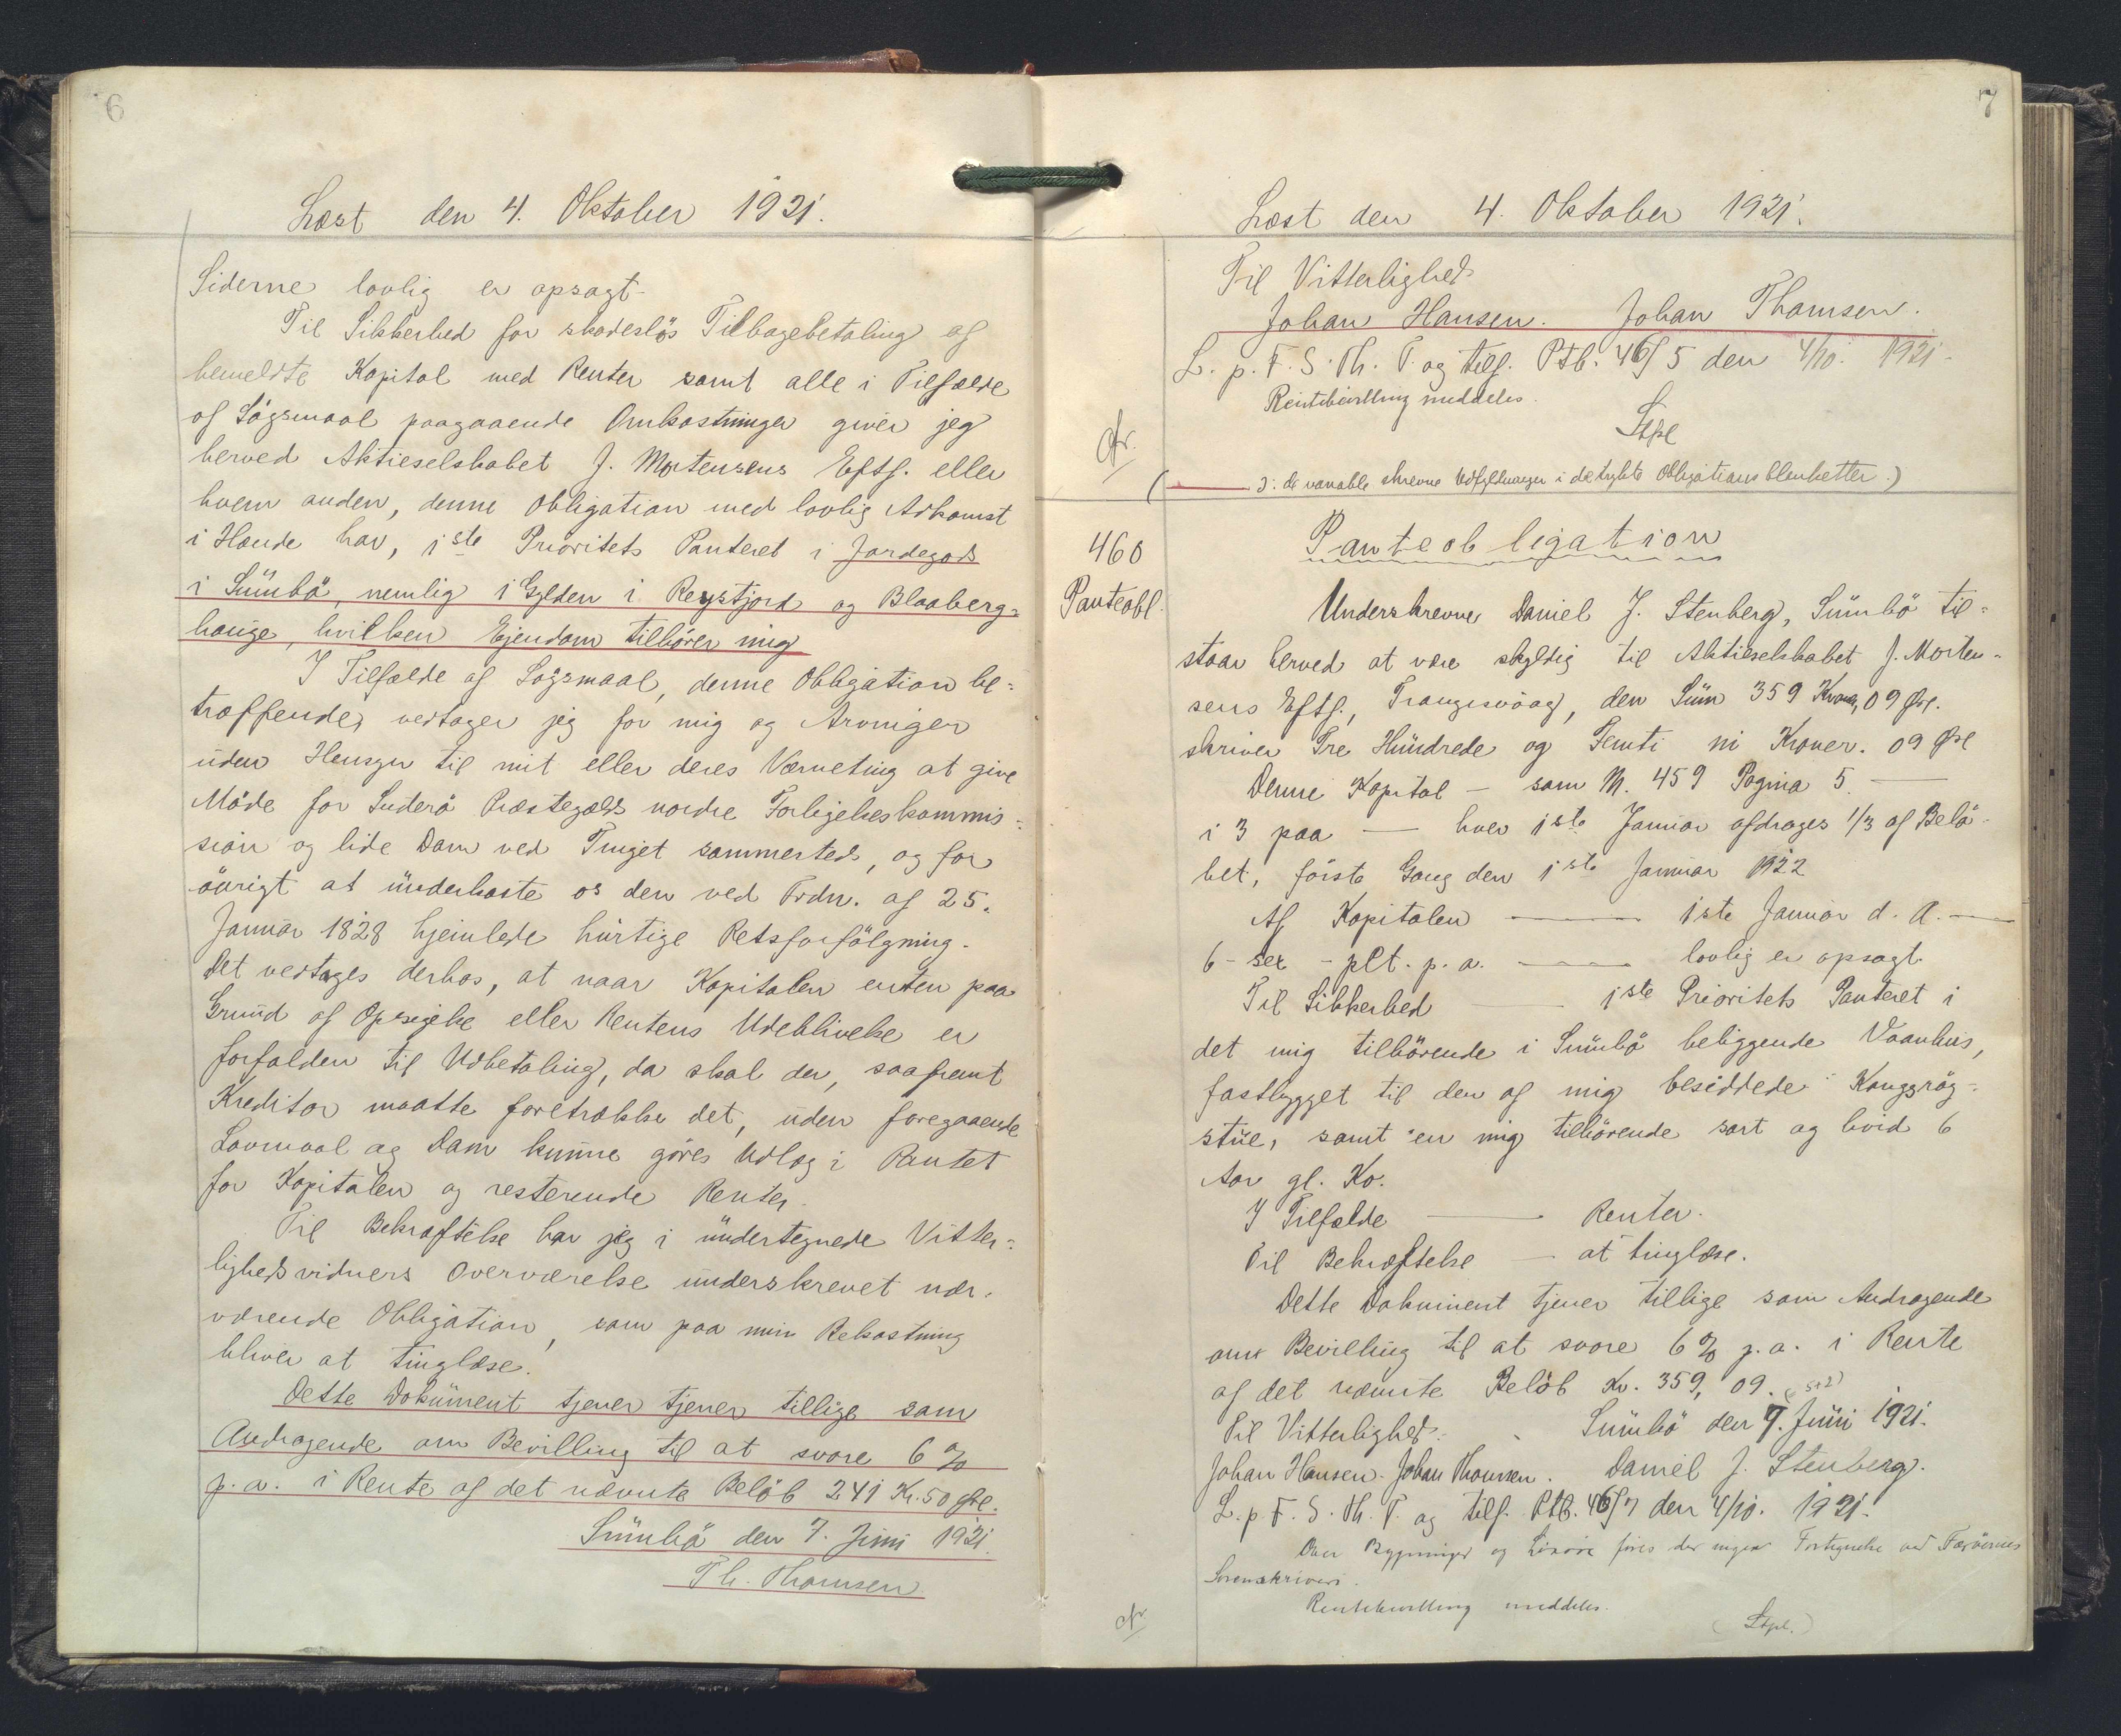 6
Læst den 4. Oktober 1921.
Siderne lovlig er opsagt.
Til Sikkerhed for skadesløs Tilbagebetaling af
bemeldte Kapital med Renter samt alle i Tilfælde
af Søgsmaal paagaaende Omkostninger giver jeg
herved Aktieselskabet J. Mortensens Eftf. eller
hvem anden, denne Obligation med lovlig Adkomst
i Hænde har, 1ste Prioritets Panteret i Jordegods
i Sumbø, nemlig i Gylden i Reystfjord og Blaaberg=
hauge, hvilken Ejendom tilhører mig
I Tilfælde af Søgsmaal, denne Obligation be=
træffende, vedtager jeg for mig og Arvinger
uden Hensyn til mit eller deres Værneting at give
Møde for Suderø Præstegælds nordre Forligelseskommis=
sion og lide Dom ved Tinget sammesteds, og for
øvrigt at underkaste os den ved Frdn. af 25.
Januar 1828 hjemlede hurtige Retsforfølgning.
Det vedtages derhos, at naar Kapitalen enten paa
Grund af Opsigelse eller Rentens Udeblivelse er
forfalden til Udbetaling, da skal der, saafremt
Kreditor maatte foretrække det, uden foregaaende
Lovmaal og Dom kunne gøres Udlæg i Pantet
for Kapitalen og resterende Renter.
Til Bekræftelse har jeg i undertegnede Vitter=
lighedsvidners Overværelse underskrevet nær=
værende Obligation, som paa min Bekostning
bliver at tinglæse.
Dette Dokument tjener tjener tillige som
Andragende om Bevilling til at svare 6%
p.a. i Rente af det nævnte Beløb 241 Kr. 50 Øre.
Sumbø den 7. Juni 1921.
Th. Thomsen
7
Læst den 4. Oktober 1921.
Til Vitterlighed
Johan Hansen. Johan Thomsen.
L. p. F. S. Th. P. og tilf. Ptb. 46/5 den 4/10. 1921.
Rentebevilling meddeles.
Stpl
cfr.
( ɔ: de variable skrevne Udfyldninger i de trykte Obligations blanketter.)
460
Panteobl.
Panteobligation
Underskrevne Daniel J. Stenberg, Sumbø til=
staar herved at være skyldig til Aktieselskabet J. Morten=
sens Eftf., Trangisvaag, den Sum 359 Kroner, 09 Øre.
skriver Tre Hundrede og Femti ni Kroner. 09 Øre
Denne Kapital — som N. 459 Pagina 5. —
i 3 paa — hver 1ste Januar afdrages 1/3 af Belø=
bet, første Gang den 1ste Januar 1922
Af Kapitalen — 1ste Januar d. A. —
6 - sex - pCt. p. a. — lovlig er opsagt
Til Sikkerhed — 1ste Prioritets Panteret i
det mig tilhørende i Sumbø beliggende Vaanhus,
fastbygget til den af mig besiddede
stue, samt en mig tilhørende sort og hvid 6
Aar gl. Ko.
I Tilfælde — Renter.
Til Bekræftelse — at tinglæse.
Dette Dokument tjener tillige som Andragende
om Bevilling til at svare 6% p.a. i Rente
af det nævnte Beløb Kr. 359, 09. (5+2)
Til Vitterlighed: Sumbø den 7. Juni 1921.
Johan Hansen. Johan Thomsen. Daniel J. Stenberg.
L. p. F. S. Th. P. og tilf. Ptb. 46/7 den 4/10. 1921.
Over Bygninger og Løsøre føres der ingen Fortegnelse ved Færøernes
Sorenskriveri.
Rentebevilling meddeles.
cfr (Stpl.)